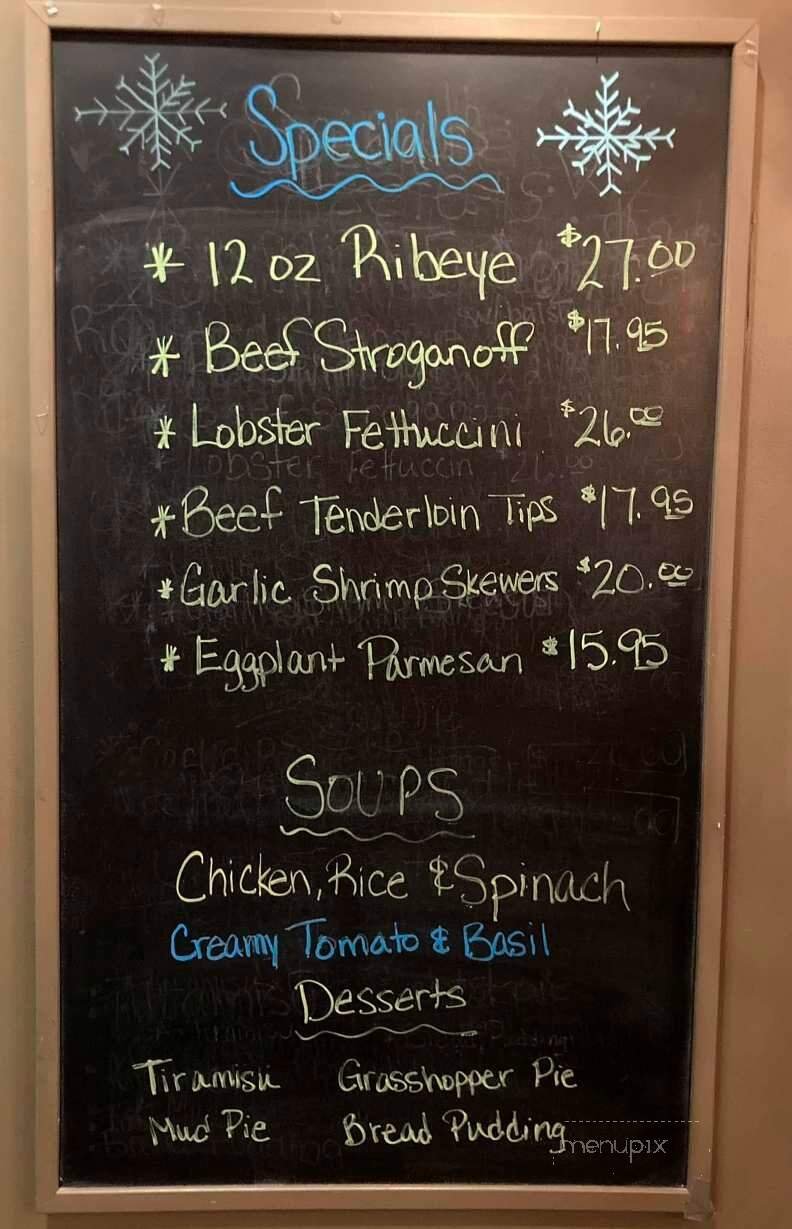 Specials
* 12 oz Ribeye $27.00
* Beef Stroganoff $17.95
* Lobster Fettuccini $26.00
* Beef Tenderloin Tips $17.95
* Garlic Shrimp Skewers $20.00
* Eggplant Parmesan $15.95
SOUPS
Chicken, Rice & Spinach
Creamy Tomato & Basil
Desserts
Tiramisu Grasshopper Pie
Mud Pie Bread Pudding
menupix